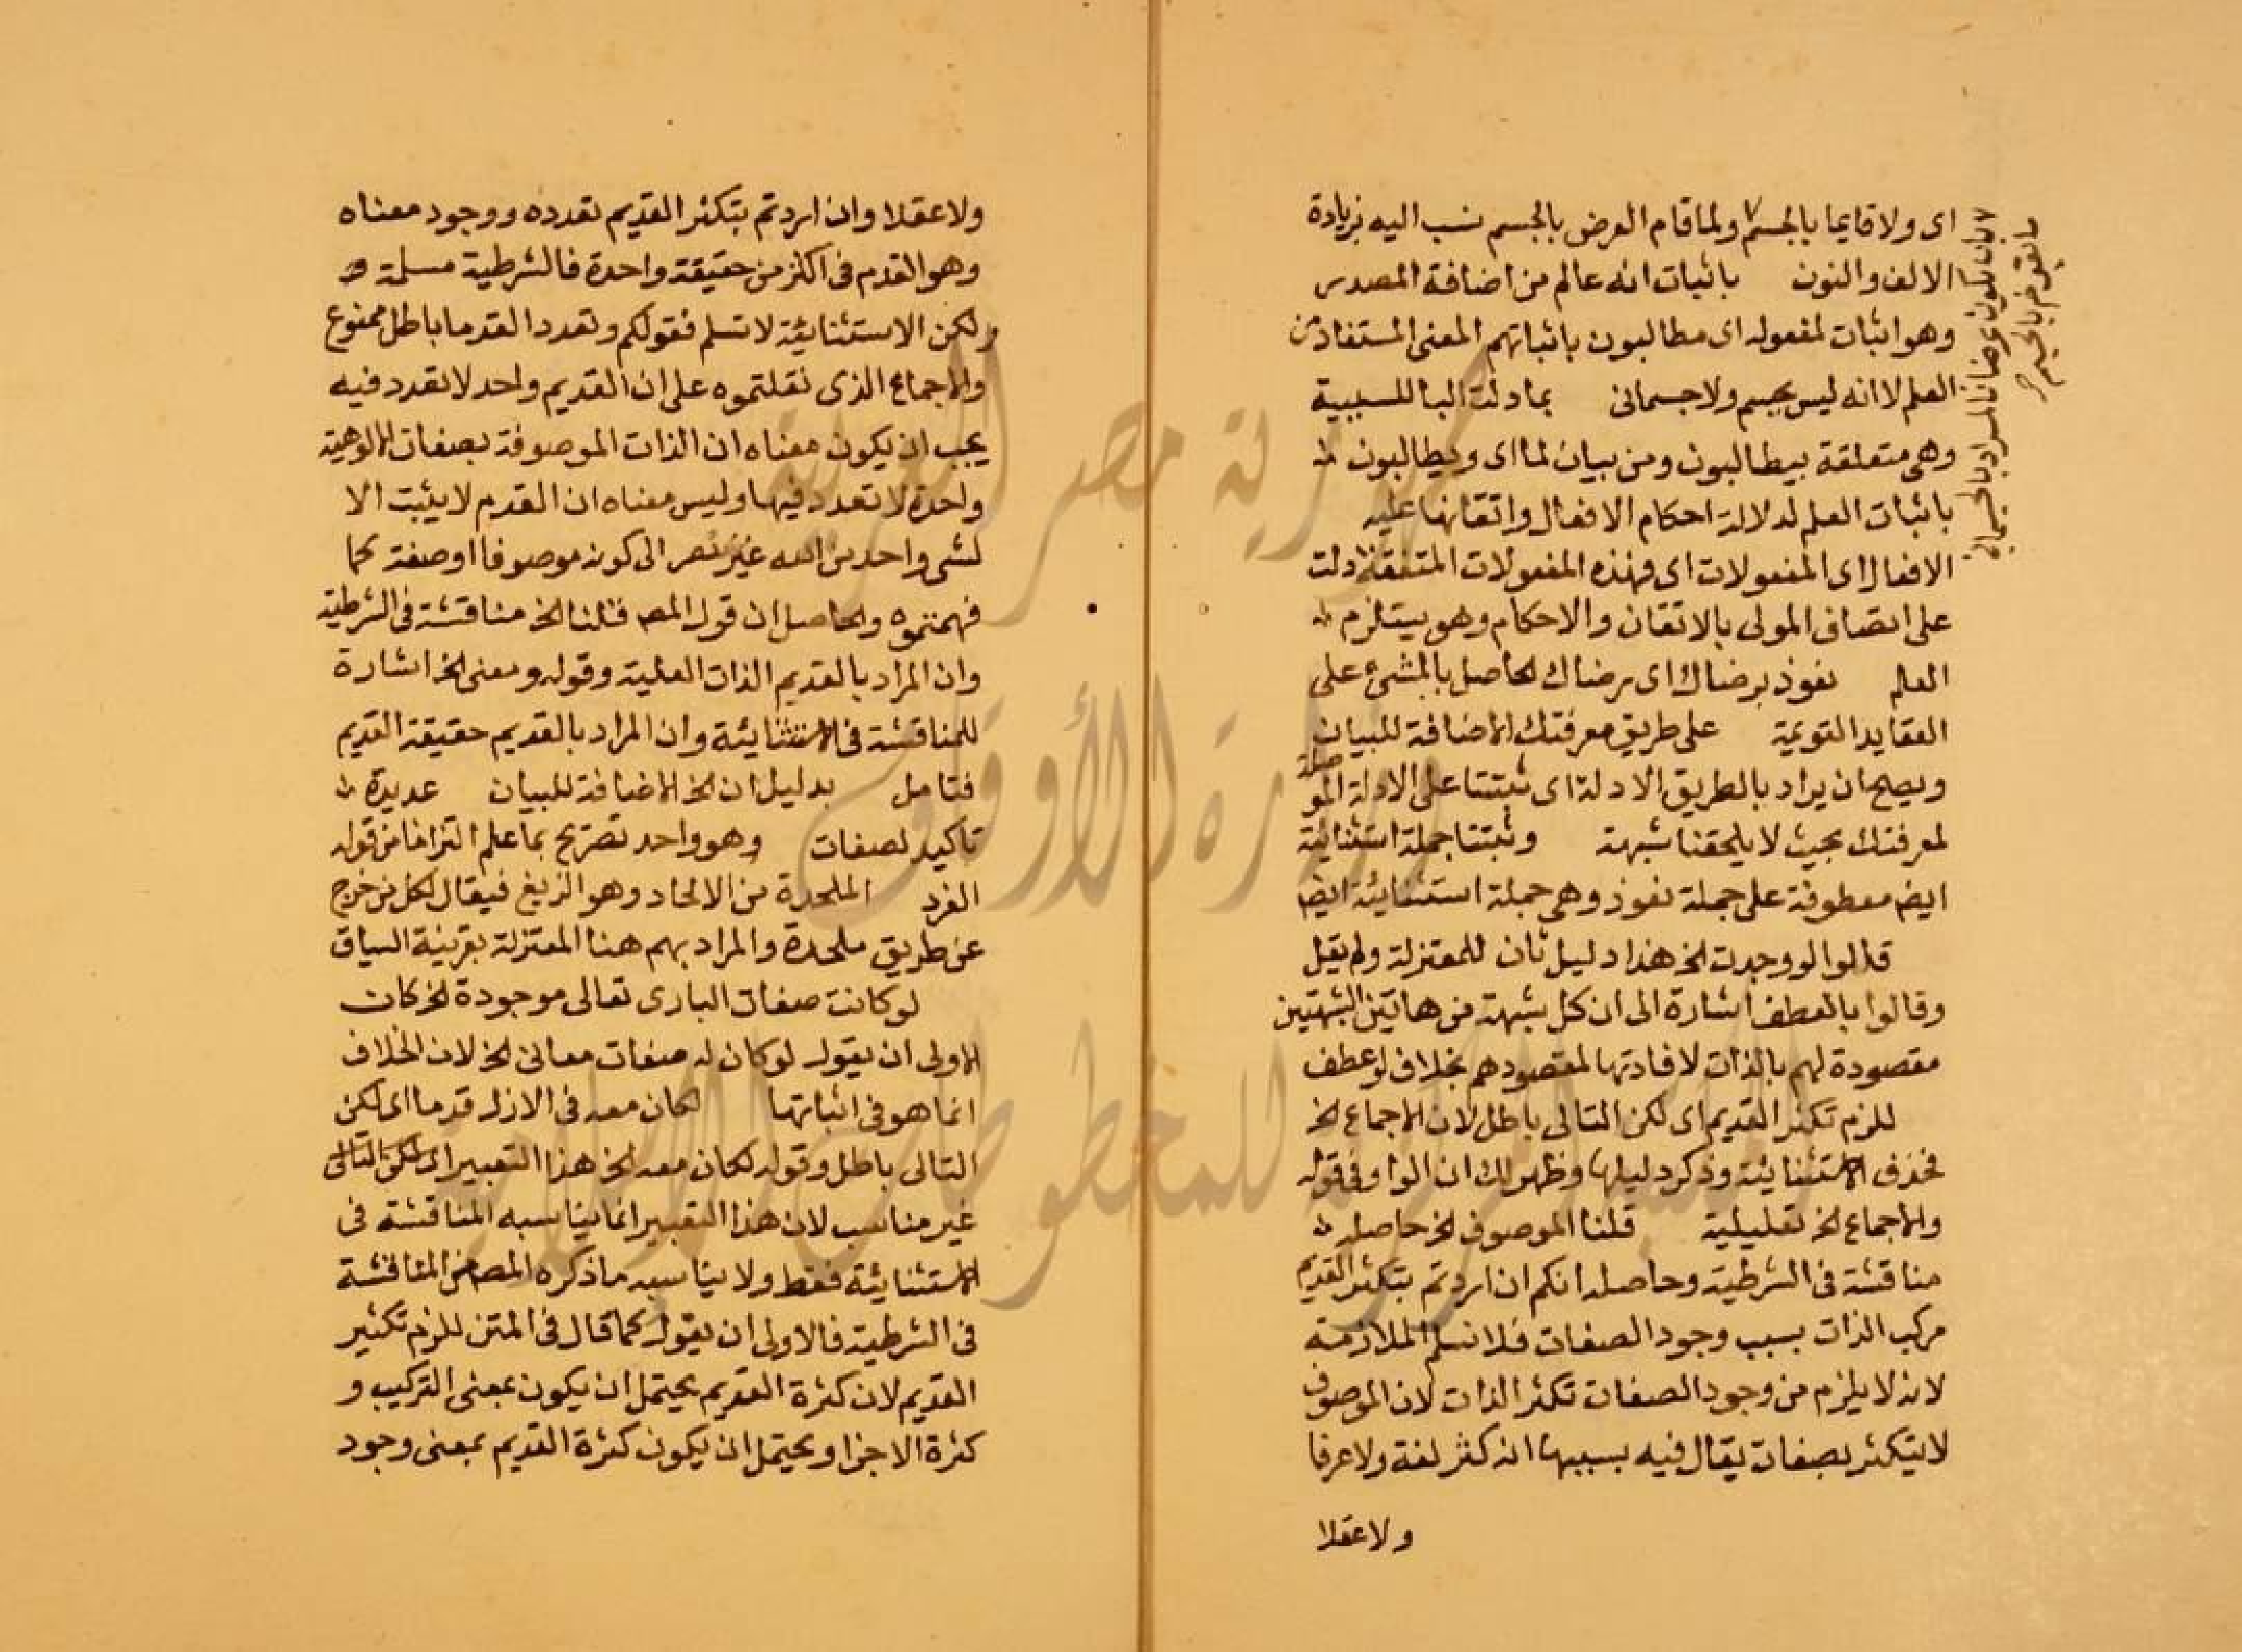 اى ولا قايما بالجسم ولما قام العرض بالجسم نسب اليه بزيادة
الالف والنون باثبات انه عالم من اضافة المصدر
وهو اثبات لمفعوله اى مطالبون باثباتهم المعنى المستفاد من
العلم لا انه ليس بجسم ولا جسمانى بما دلت البا للسببية
وهى متعلقة بيطالبون ومن بيان لما اى ويطالبون
باثبات العلم لدلالة احكام الافعال واتقانها عليه
الافعال اى المفعولات اى فهذه المفعولات المتقنة دلت
على اتصاف المولى بالاتقان والاحكام وهو يستلزم
العلم نعوذ برضاك اى برضاك الحاصل بالمشى على
العقايد القويمة على طريق معرفتك الاضافة للبيان
ويصح ان يراد بالطريق الادلة اى ثبتنا على الادلة الموصلة
لمعرفتك بحيث لا يلحقنا شبهة وثبتنا جملة استئنائية
ايضا معطوفة على جملة نعوذ وهى جملة استئنائية ايضا
قالوا لو وجدت الخ هذا دليل ثان للمعتزلة ولم يقل
وقالوا بالعطف اشارة الى ان كل شبهة من هاتين الشبهتين
مقصودة لهم بالذات لافادتها لمقصودهم بخلاف لو عطف
للزم تكثر القديم اى لكن التالى باطل لان الاجماع الخ
فحذف الاستثنايئة وذكر دليلها وظهر لك ان الواو فى قوله
والاجماع الخ تعليلية قلنا الموصوف الخ حاصله
مناقشة فى الشرطية وحاصله انكم ان اردتم بتكثر القديم
مركب الذات بسبب وجود الصفات فلا نسلم الملازمة
لانه لا يلزم من وجود الصفات تكثر الذات لان الموصوف
لا يتكثر بصفات يقال فيه بسببها انه كثر لغة ولا عرفا
ولا عقلا
ولا عقلا وان اردتم بتكثر القديم تعدده ووجود معناه
وهو القدم فى اكثر من حقيقة واحدة فالشرطية مسلمة
ولكن الاستثنايئة لا تسلم فقولكم وتعدد القدما باطل ممنوع
والاجماع الذى نقلتموه على ان القديم واحد لا تعدد فيه
يجب ان يكون معناه ان الذات الموصوفة بصفات الالوهية
واحدة لا تعدد فيها وليس معناه ان القدم لا يثبت الا
لشى واحد من الله غير نظر الى كونه موصوفا او صفة كما
فهمتموه والحاصل ان قول المص قلنا الخ مناقشة فى الشرطية
وان المراد بالقديم الذات العلية وقوله ومعنى الخ اشارة
للمناقشة فى الاستثنايئة وان المراد بالقديم حقيقة القديم
فتامل بدليل ان الخ الاضافة للبيان عديدة
تاكيد لصفات وهو واحد تصريح بما علم التزاما من قوله
الفرد الملحدة من الالحاد وهو الزيغ فيقال لكل من خرج
عن طريق ملحدة والمراد بهم هنا المعتزلة بقرينة السياق
لو كانت صفات البارى تعالى موجودة الخ كان
الاولى ان يقول لو كان له صفات معانى الخ لان الخلاف
انما هو فى اثباتها لكان معه فى الازل قدما اى لكن
التالى باطل وقوله لكان معه الخ هذا التعبير اى لكن التالى
غير مناسب لان هذا التعبير انما يناسبه المناقشة فى
الاستثنايئة فقط ولا يناسبه ما ذكره المص من المناقشة
فى الشرطية فالاولى ان يقول كما قال فى المتن للزم تكثير
القديم لان كثرة القديم يحتمل ان يكون بمعنى التركيب و
كثرة الاجزا ويحتمل ان يكون كثرة القديم بمعنى وجود
جمهورية مصر العربية
وزارة الأوقاف